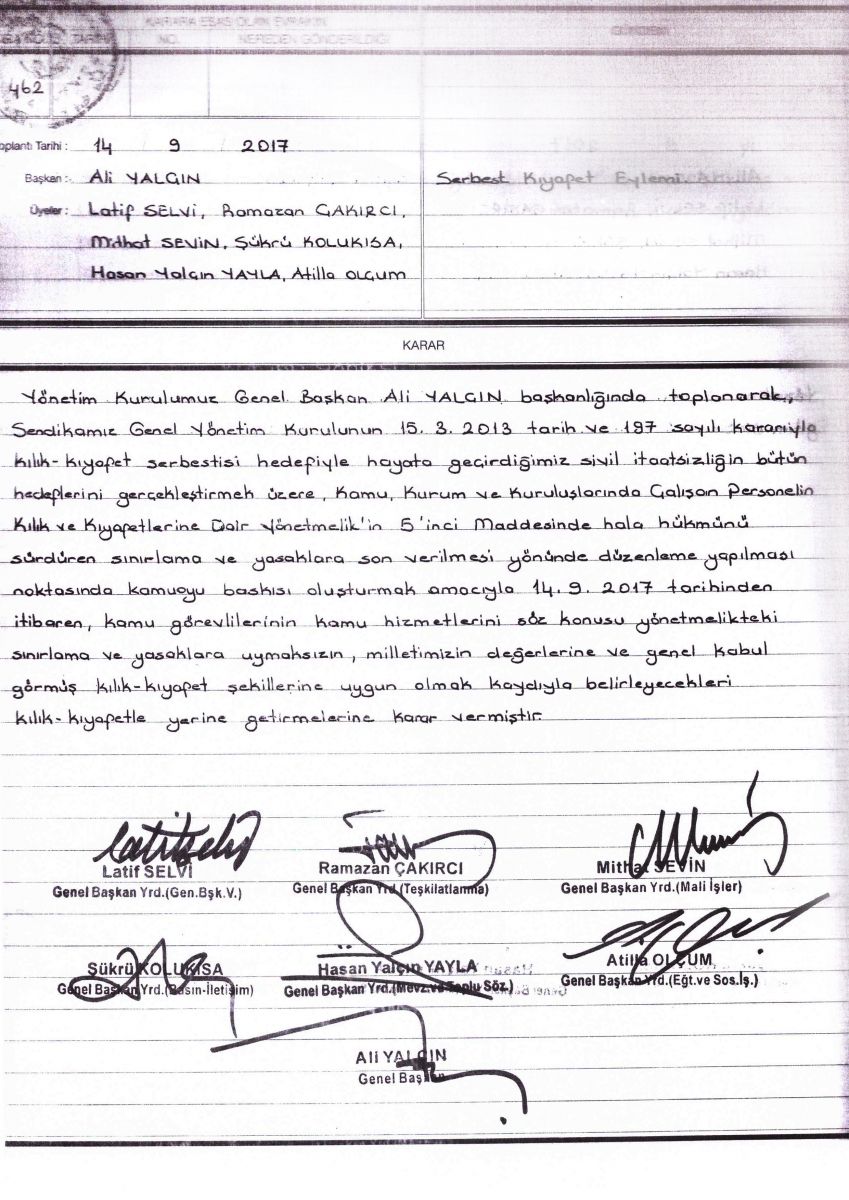 KARARA ESAS OLAN EVRAKIN
TARİHİ NO. NEREDEN GÖNDERİLDİĞİ GÜNDEM
462
oplantı Tarihi : 14 / 9 / 2017
Başkan : Ali YALÇIN
Serbest Kıyafet Eylemi.
Üyeler : Latif SELVİ, Ramazan ÇAKIRCI,
Midhat SEVİN, Şükrü KOLUKISA,
Hasan Yalçın YAYLA, Atilla OLÇUM
KARAR
Yönetim Kurulumuz Genel Başkan Ali YALÇIN başkanlığında toplanarak,
Sendikamız Genel Yönetim Kurulunun 15. 3. 2013 tarih ve 197 sayılı kararıyla
kılık-kıyafet serbestisi hedefiyle hayata geçirdiğimiz sivil itaatsizliğin bütün
hedeflerini gerçekleştirmek üzere, Kamu, Kurum ve Kuruluşlarında Çalışan Personelin
Kılık ve Kıyafetlerine Dair Yönetmelik'in 5'inci Maddesinde hala hükmünü
sürdüren sınırlama ve yasaklara son verilmesi yönünde düzenleme yapılması
noktasında kamuoyu baskısı oluşturmak amacıyla 14. 9. 2017 tarihinden
itibaren, kamu görevlilerinin kamu hizmetlerini söz konusu yönetmelikteki
sınırlama ve yasaklara uymaksızın, milletimizin değerlerine ve genel kabul
görmüş kılık-kıyafet şekillerine uygun olmak kaydıyla belirleyecekleri
kılık-kıyafetle yerine getirmelerine karar vermiştir.
Latif SELVİ
Genel Başkan Yrd.(Gen.Bşk.V.)
Ramazan ÇAKIRCI
Genel Başkan Yrd.(Teşkilatlanma)
Mithat SEVİN
Genel Başkan Yrd.(Mali İşler)
Şükrü KOLUKISA
Genel Başkan Yrd.(Basın-İletişim)
Hasan Yalçın YAYLA
Genel Başkan Yrd.(Mevz.ve Toplu Söz.)
Atilla OLÇUM
Genel Başkan Yrd.(Eğt.ve Sos.İş.)
Ali YALÇIN
Genel Başkan